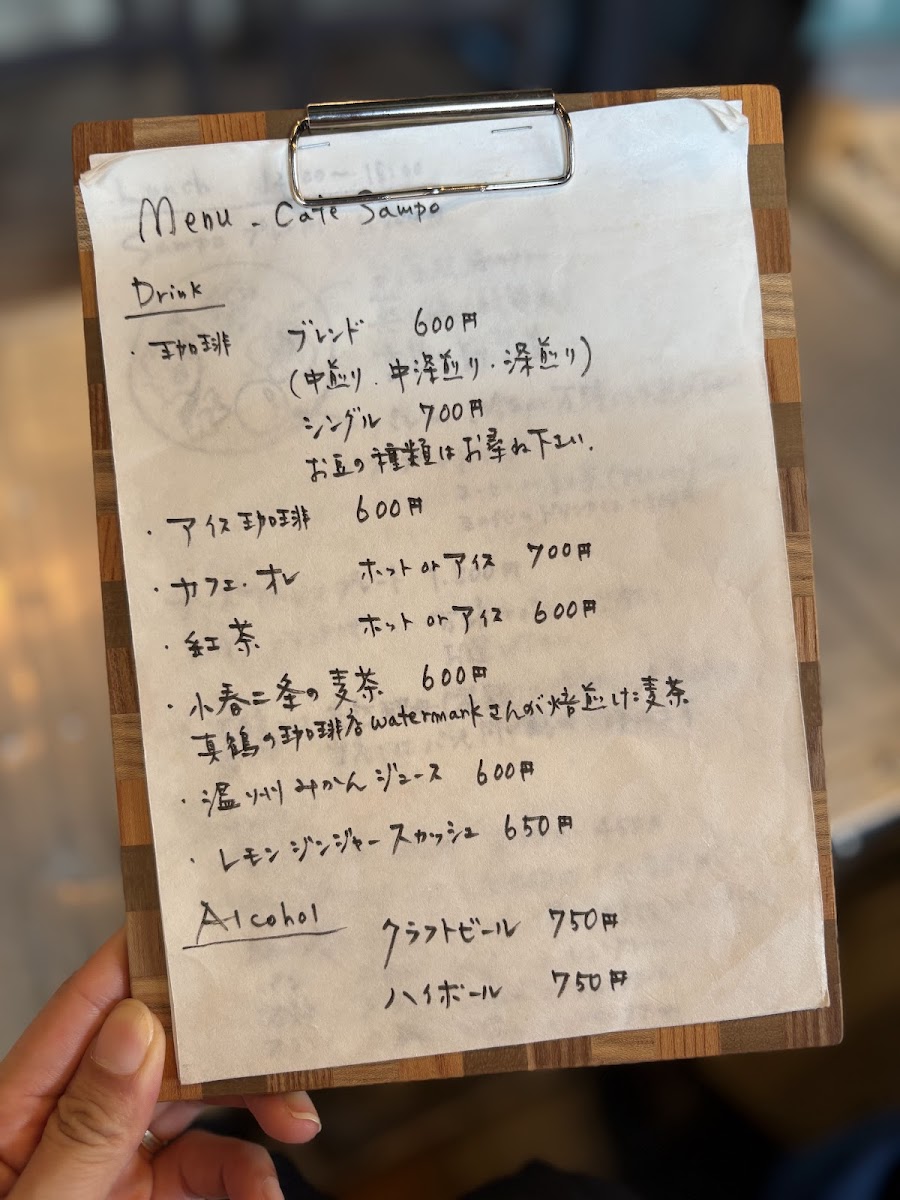 Menu - Cafe Sampo
Drink
・珈琲 ブレンド 600円
(中煎り．中深煎り・深煎り)
シングル 700円
お豆の種類はお尋ね下さい.
・アイス珈琲 600円
・カフェ・オレ ホット or アイス 700円
・紅茶 ホット or アイス 600円
・小春二条の麦茶 600円
真鶴の珈琲店watermarkさんが焙煎した麦茶
・温州みかんジュース 600円
・レモンジンジャースカッシュ 650円
Alcohol クラフトビール 750円
ハイボール 750円